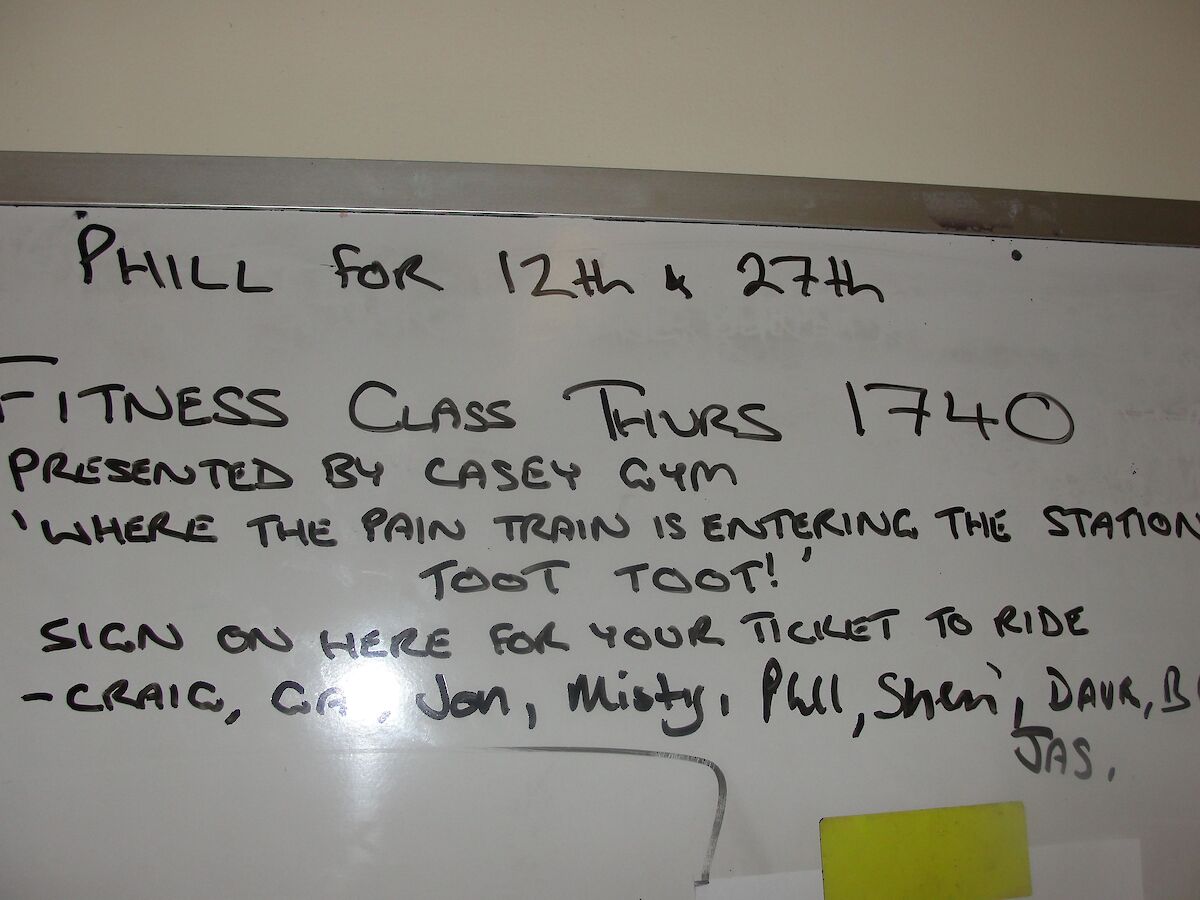 PHILL FOR 12th & 27th
FITNESS CLASS THURS 1740
PRESENTED BY CASEY GYM
'WHERE THE PAIN TRAIN IS ENTERING THE STATION
TOOT TOOT!'
SIGN ON HERE FOR YOUR TICKET TO RIDE
-CRAIG, Jon, Misty, Phll, Sheri, DAVE,
JAS.